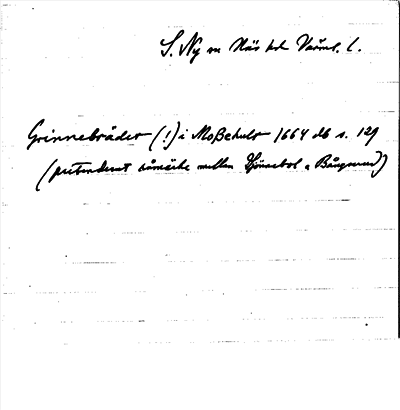 S. Ny sn Näs hd Värml. l.
Grinnebråder (!) i Moßehult 1664 db s. 129
(pretenderat råmärke mellan Hjönnebol o Bångerud)